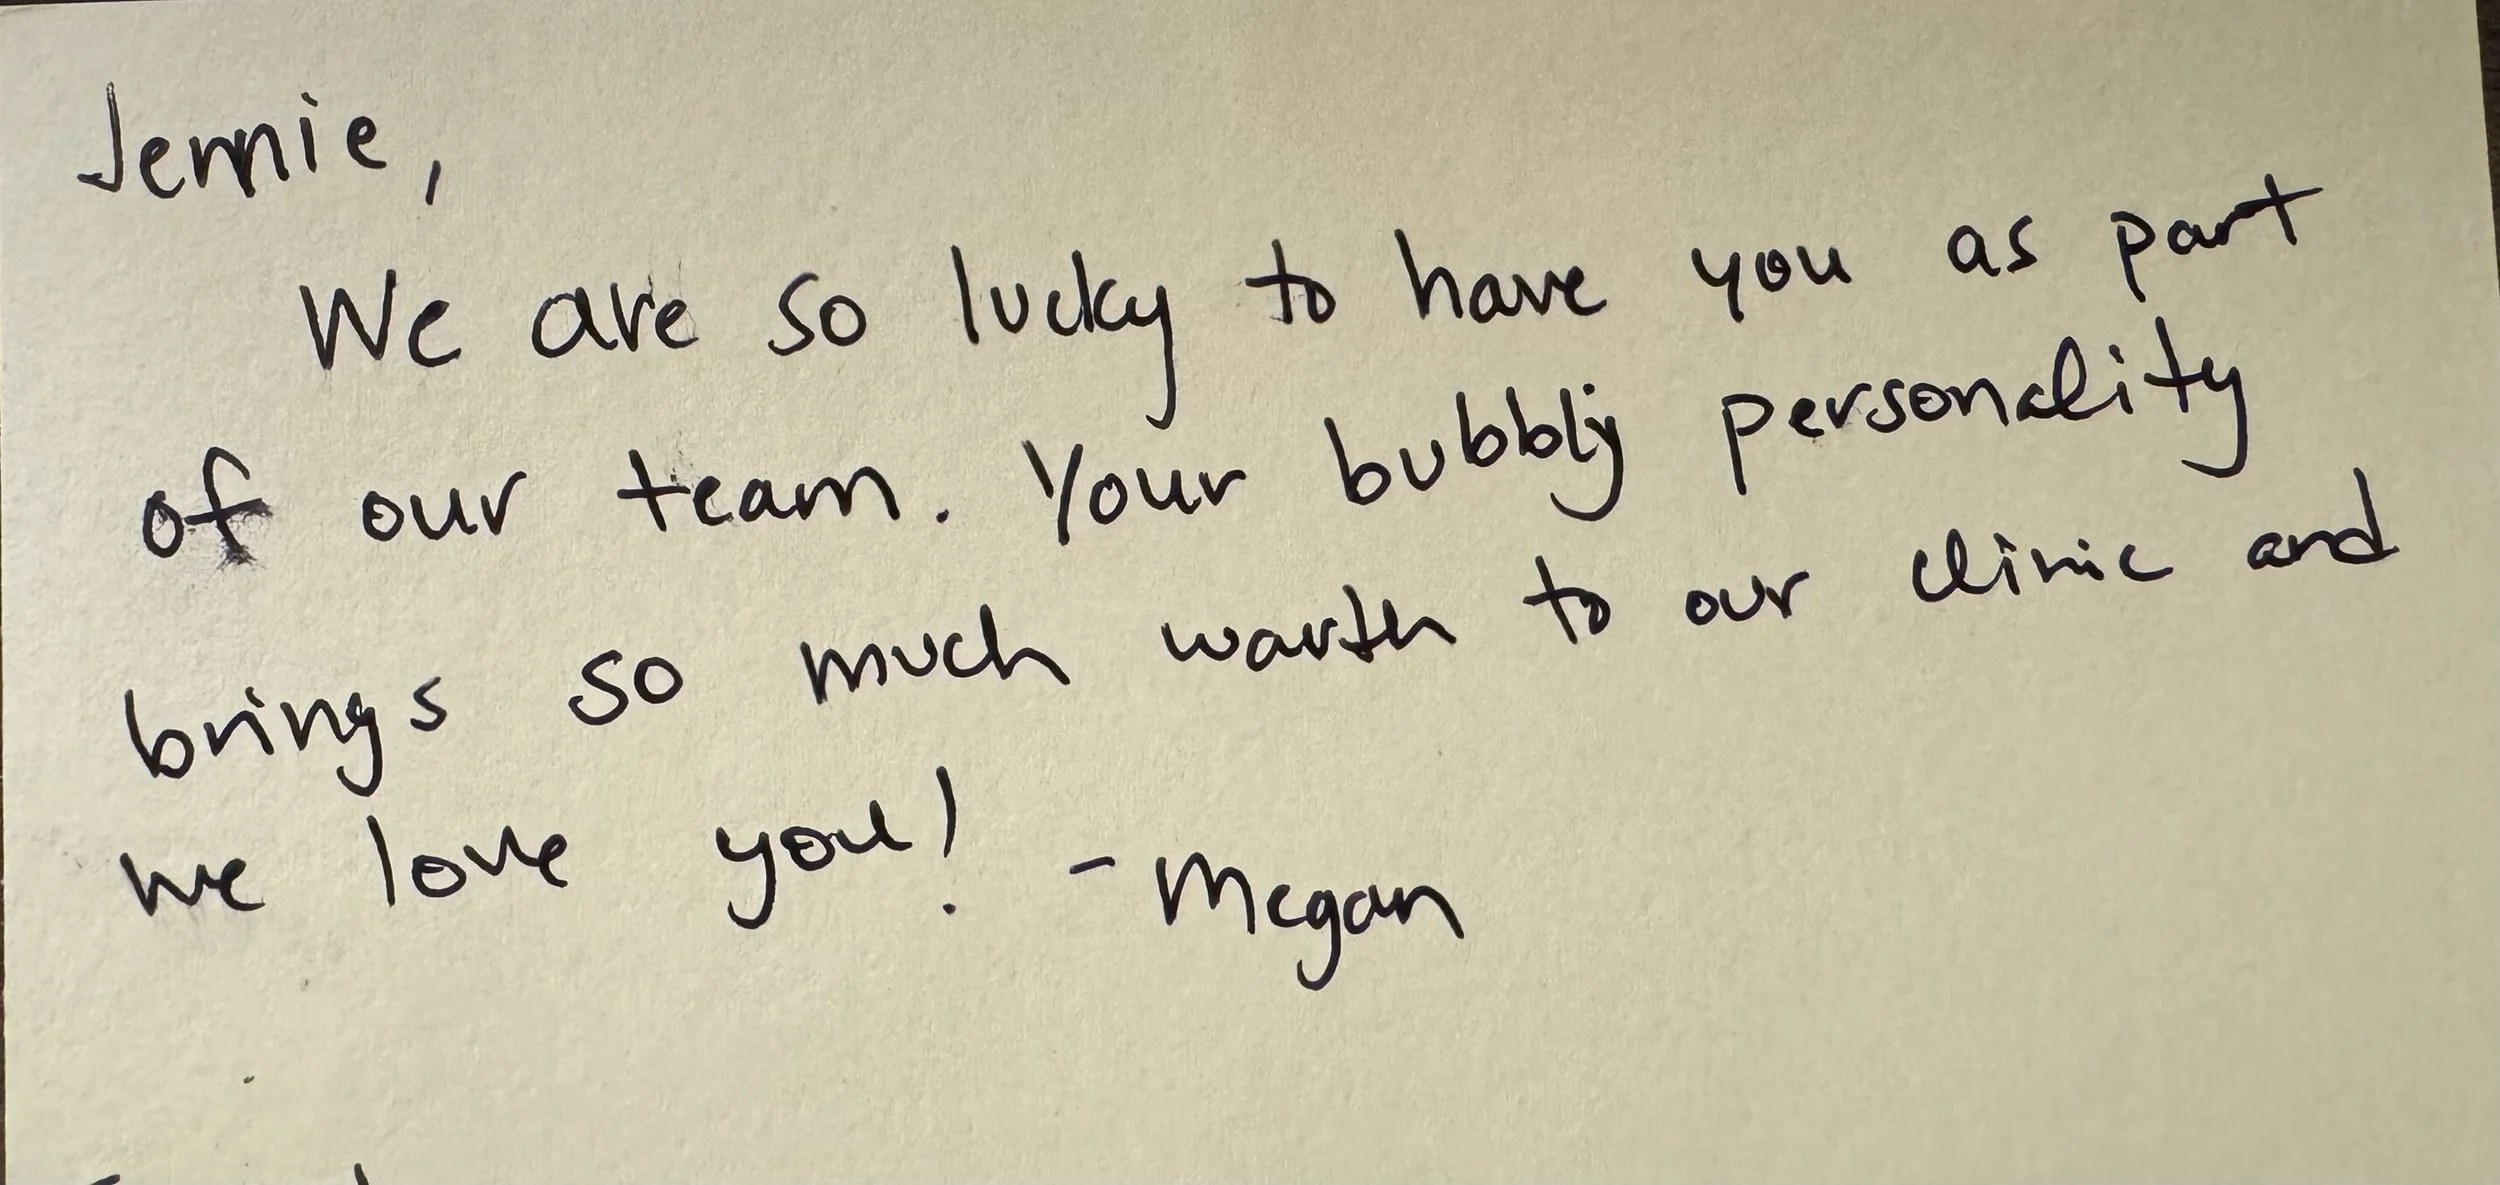 Jennie,
We are so lucky to have you as part
of our team. Your bubbly personality
brings so much warth to our clinic and
we love you! -Megan